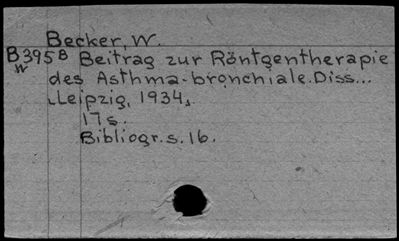 Becker, W.
B395B Beitrag zur Röntgentherapie
W des Asthma-bronchiale. Diss...
Leipzig, 1934.
17s.
Bibliogr.s.16.